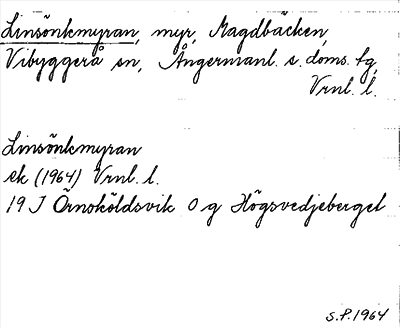 Linsönkmyran, myr, Magdbäcken,
Vibyggerå sn, Ångermanl. s. doms. tg,
Vrnl. l.
Linsönkmyran
ek (1964) Vrnl. l.
19 J Örnsköldsvik 0 g Högsvedjeberget
S.P. 1964